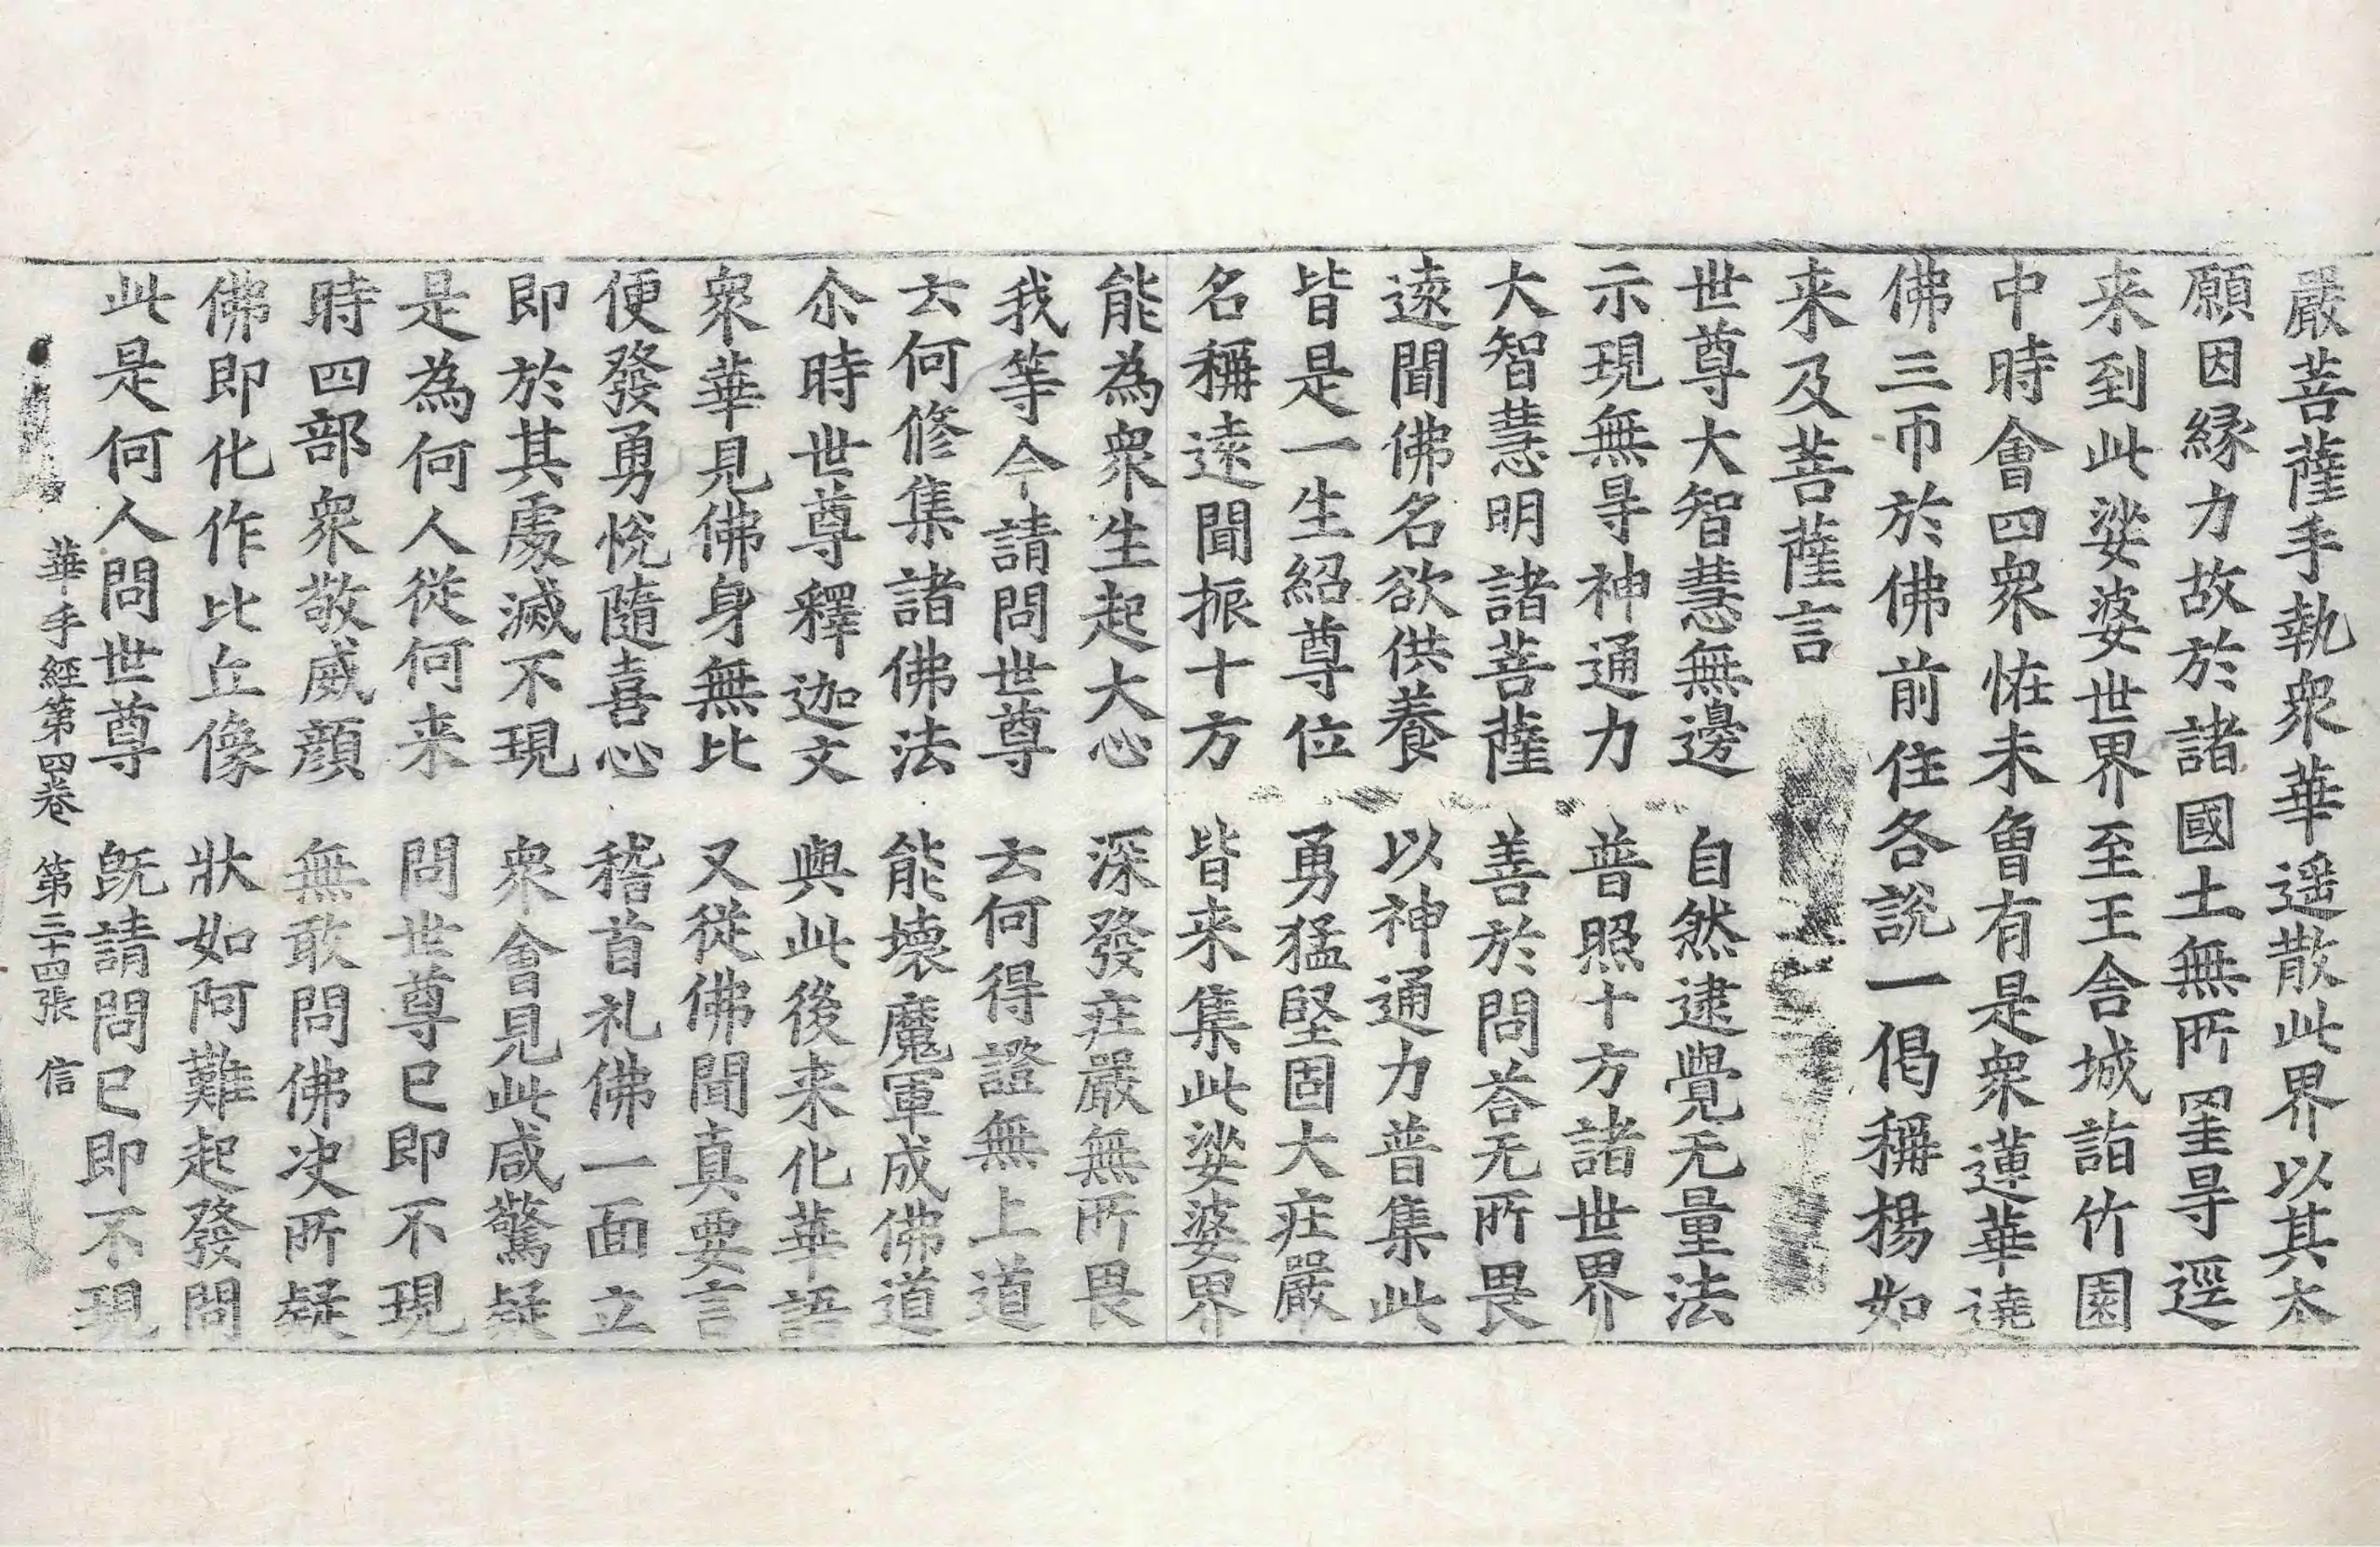 嚴菩薩手執衆華遥散此界以其本
願因緣力故於諸國土無所罣㝵逕
来到此娑婆世界至王舍城詣竹園
中時會四衆恠未曾有是衆蓮華遶
佛三帀於佛前住各說一偈稱揚如
来及菩薩言
世尊大智慧無邊　自然逮覺无量法
示現無㝵神通力　普照十方諸世界
大智慧明諸菩薩　善於問荅无所畏
遠聞佛名欲供養　以神通力普集此
皆是一生紹尊位　勇猛堅固大莊嚴
名稱遠聞振十方　皆来集此娑婆界
能為衆生起大心　深發莊嚴無所畏
我等今請問世尊　云何得證無上道
云何修集諸佛法　能壞魔軍成佛道
尒時世尊釋迦文　與此後来化華語
衆華見佛身無比　又從佛聞真要言
便發勇悅隨喜心　稽首礼佛一面立
即於其處滅不現　衆會見此咸驚疑
是為何人從何来　問世尊已即不現
時四部衆敬威顔　無敢問佛决所疑
佛即化作比丘像　狀如阿難起發問
此是何人問世尊　旣請問已即不現
華手經第四卷　第二十四張　信